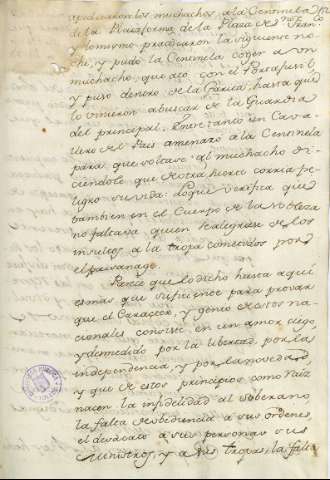 apedrearon los muchachos, a la Centinela
de la Plataforma de la Plaza de Sn. Fran.co
y lo mismo practicaron la siguiente no-
che, y pudo la Centinela coger a un
muchacho, que ató con el Portafusil
y puso dentro de la Garita, hasta qe
lo vinieron a buscar de la Guardia
del principal. Entretanto un Cava-
llero del Pais amenazó a la Centinela
para que soltase al muchacho di-
ciendole que de otra suerte corria pe-
ligro su vida: lo que verifica que
tambien en el Cuerpo de la Nobleza
no faltava quien se alegrase de los
insultos a la tropa cometidos por
el paisanage.
Parece que lo dicho hasta aqui
es mas que suficiente para provar
que el Caracter, y genio de estos na-
cionales consiste en un amor ciego,
y desmedido por la libertad, por la
independencia, y por la novedad
y que de estos principios como raiz
nacen la infidelidad al soberano,
la falta de obediencia a sus ordenes,
el desacato a sus personas sus
Ministros, y a sus tropas; la falta